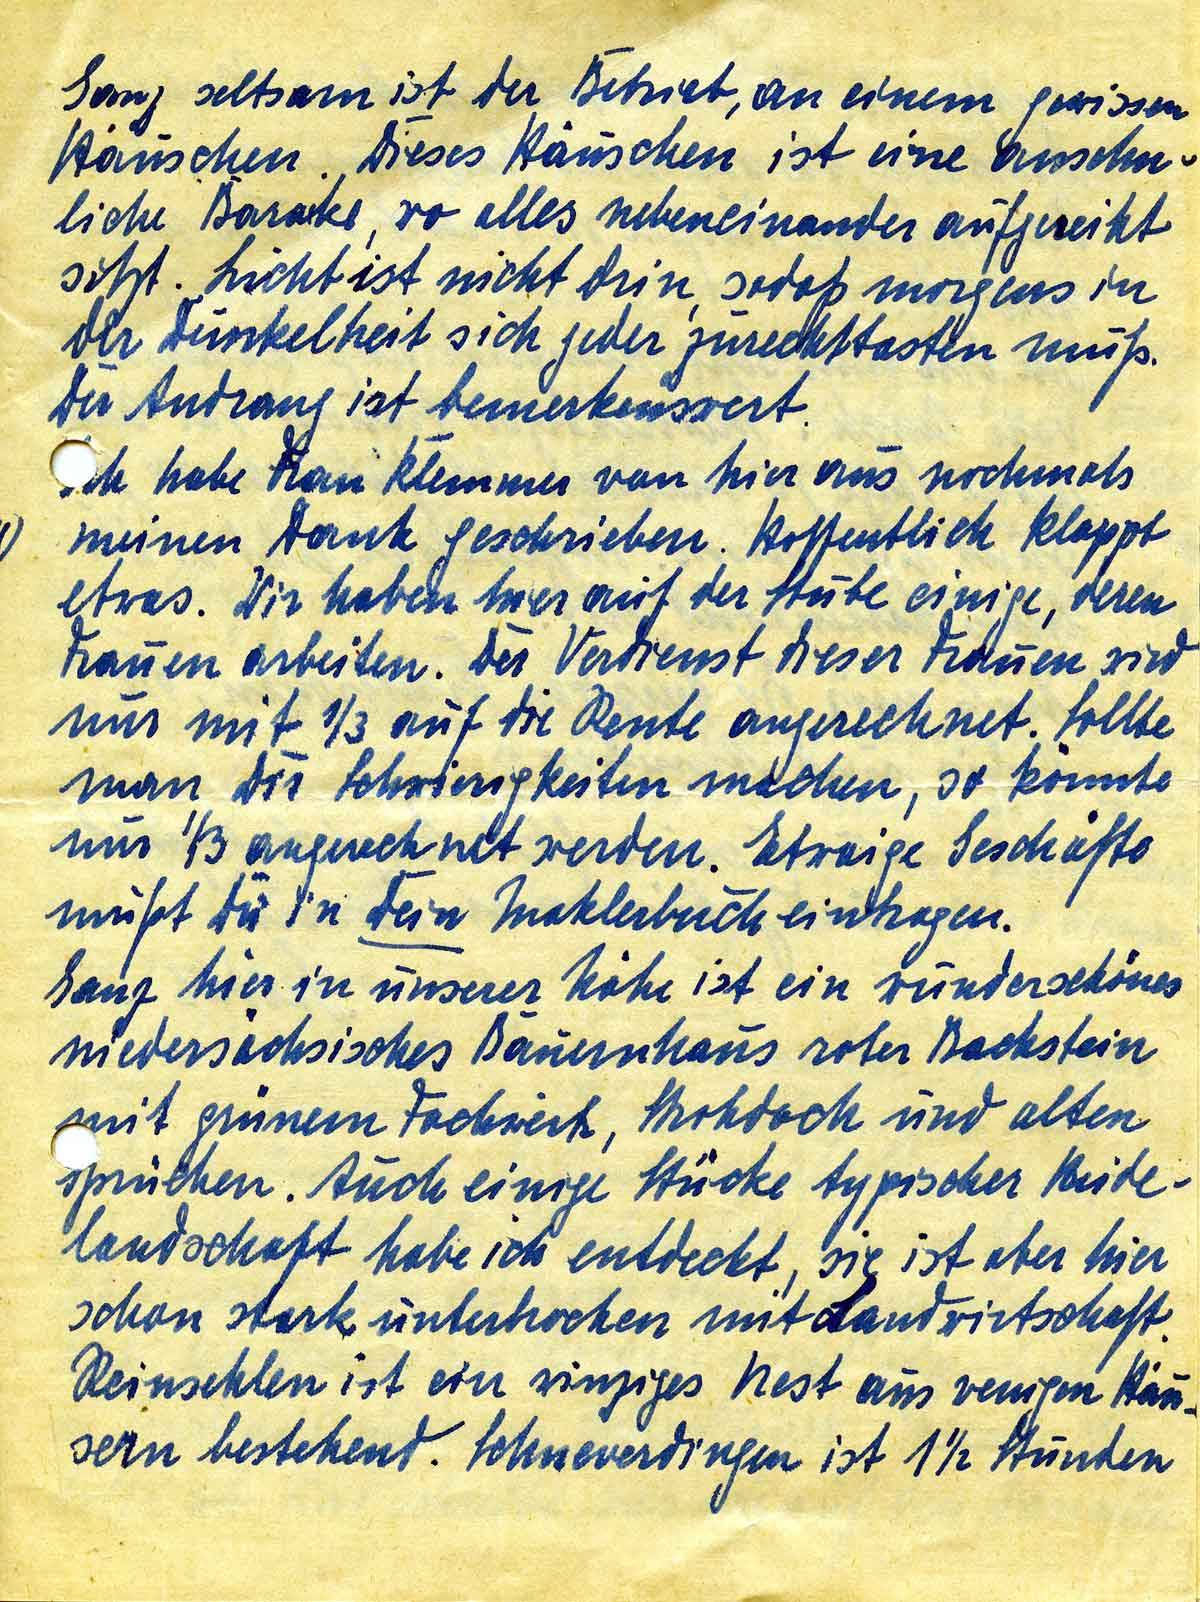 Ganz seltsam ist der Betrieb, an einem gewissen
Häuschen. Dieses Häuschen ist eine ansehn-
liche Baracke, wo alles nebeneinander aufgereiht
sitzt. Licht ist nicht drin, sodaß morgens in
der Dunkelheit sich jeder zurechttasten muß.
Der Andrang ist bemerkenswert.
Ich habe Frau Klemmer von hier aus nochmals
meinen Dank geschrieben. Hoffentlich klappt
etwas. Wir haben hier auf der Stube einige, deren
Frauen arbeiten. Der Verdienst dieser Frauen wird
nur mit 1/3 auf die Rente angerechnet. Sollte
man Dir Schwierigkeiten machen, so könnte
nur 1/3 angerechnet werden. Etwaige Geschäfte
mußt Du in Dein Maklerbuch eintragen.
Ganz hier in unserer Nähe ist ein wunderschönes
niedersächsisches Bauernhaus roter Backstein
mit grünem Fachwerk, Strohdach und alten
Sprüchen. Auch einige Stücke typischer Heide-
landschaft habe ich entdeckt, sie ist aber hier
schon stark unterbrochen mit Landwirtschaft.
Reinsehlen ist ein winziges Nest aus wenigen Häu-
sern bestehend. Schneverdingen ist 1½ Stunden